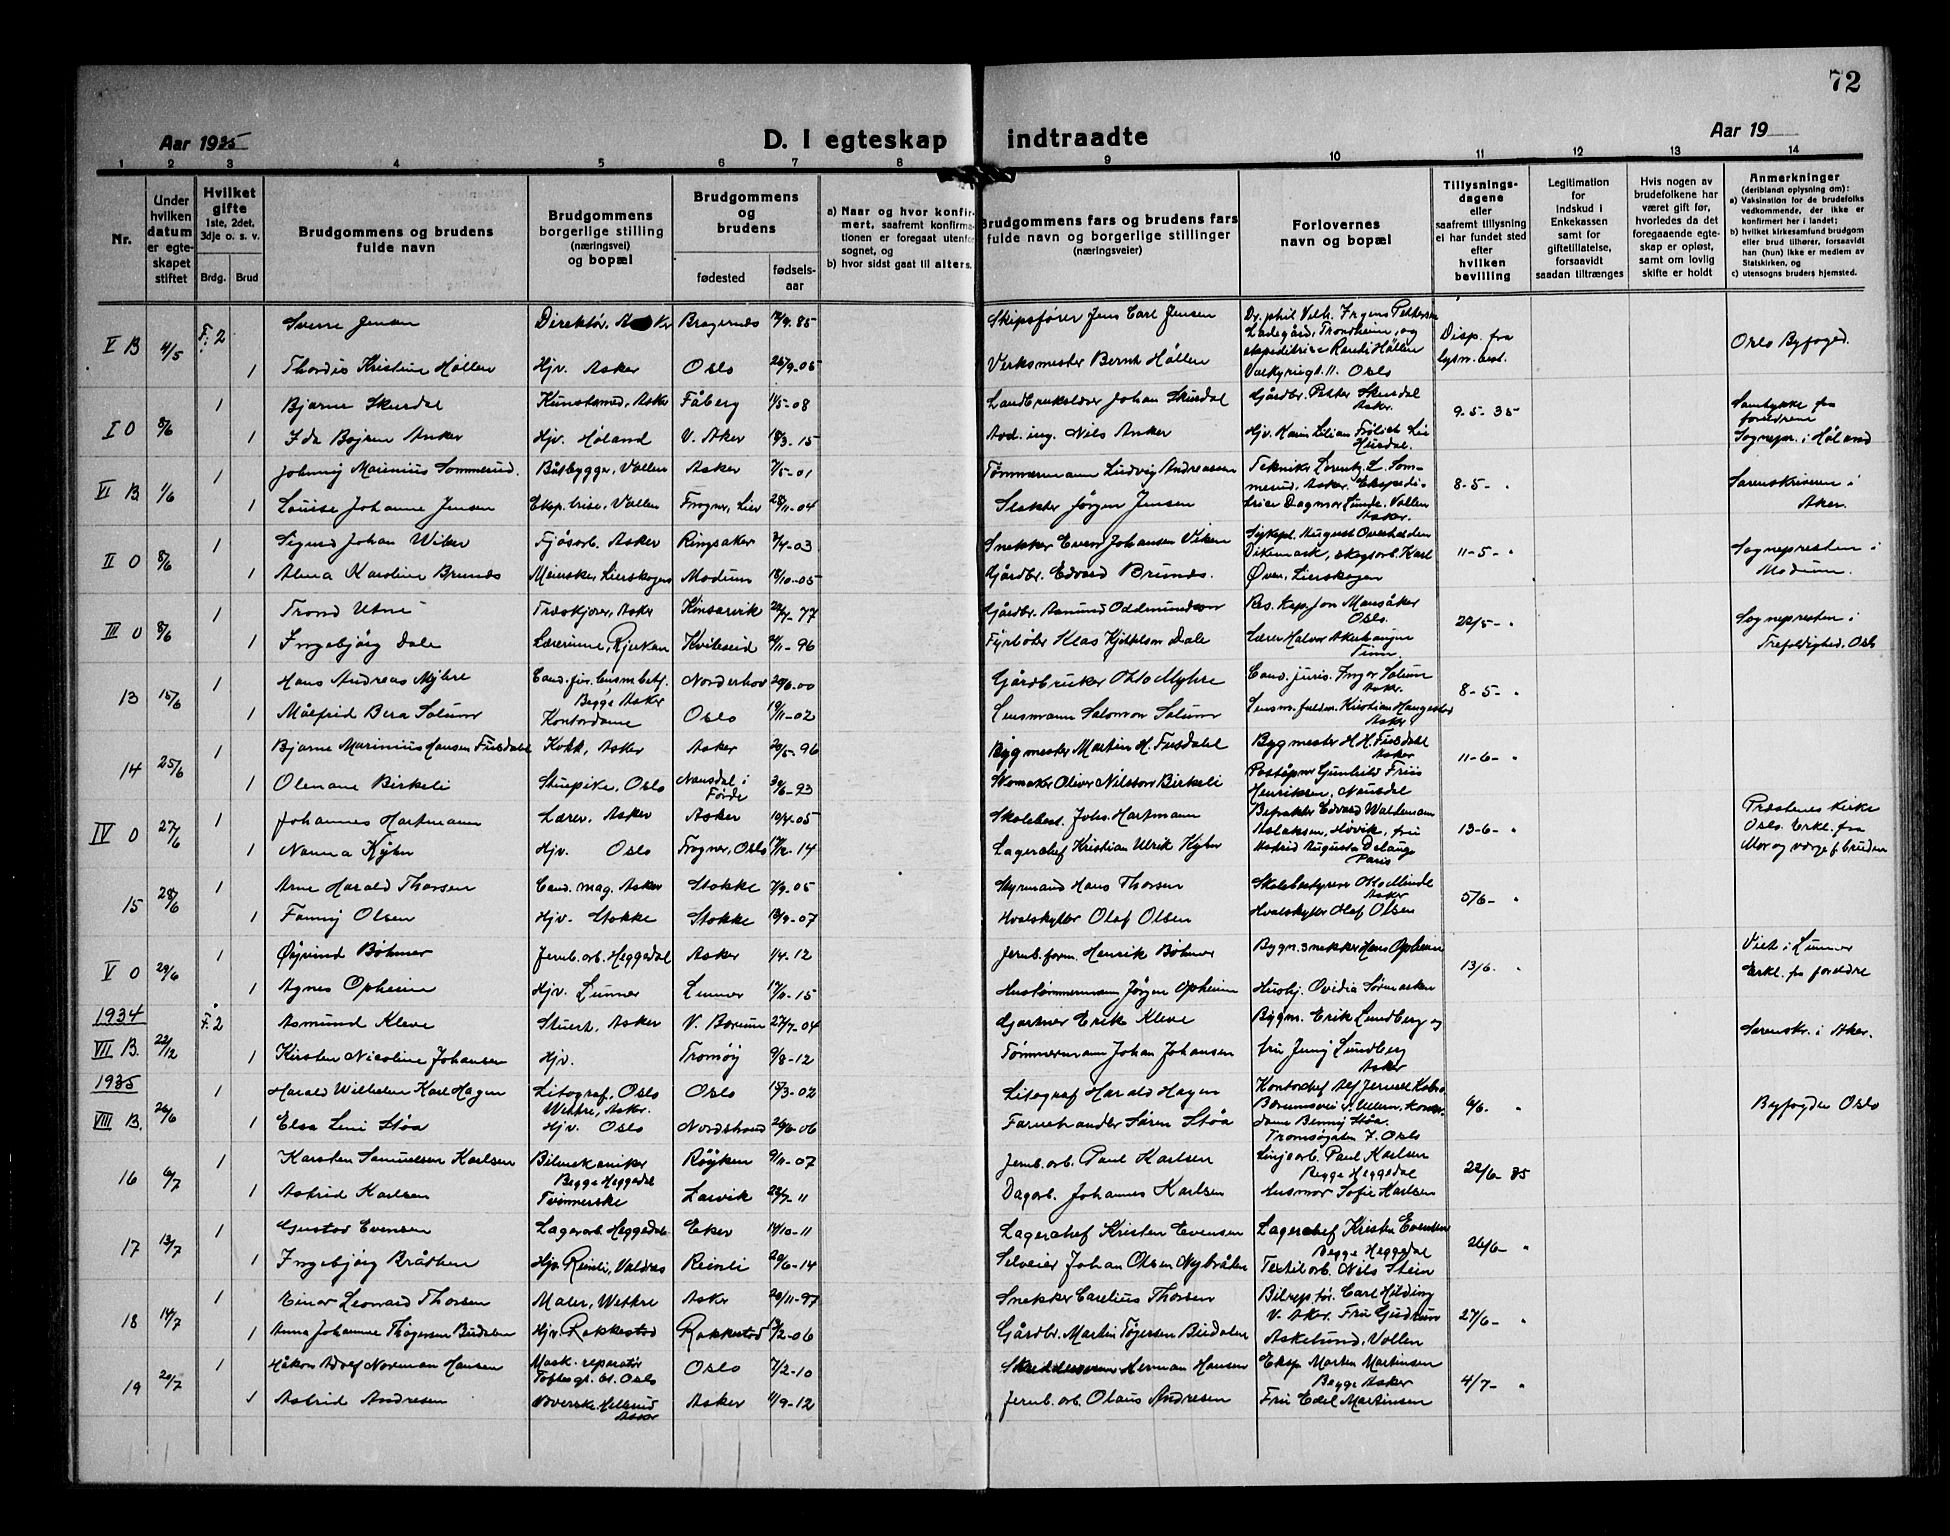 72
Aar 1935
D. I egteskap indtraadte
Aar 19
1 2 3 4 5 6 7 8 9 10 11 12 13 14
Nr.
Under hvilken datum er egteskapet stiftet
Hvilket gifte 1ste, 2det, 3dje o. s. v.
Brdg. Brud
Brudgommens og brudens fulde navn
Brudgommens borgerlige stilling (næringsvei) og bopæl
Brudgommens og brudens
fødested
fødselsaar
a) Naar og hvor konfirmert, saafremt konfirmationen er foregaat utenfor sognet, og
b) hvor sidst gaat til alters.
Brudgommens fars og brudens fars fulde navn og borgerlige stillinger (næringsveier)
Forlovernes navn og bopæl
Tillysningsdagene eller saafremt tillysning ei har fundet sted efter hvilken bevilling
Legitimation for indskud i Enkekassen samt for giftetillatelse, forsaavidt saadan tiltrænges
Hvis nogen av brudefolkene har været gift før, hvorledes da det foregaaende egteskap er opløst, samt om lovlig skifte er holdt
Anmerkninger
(deriblandt oplysning om):
a) Vaksination for de brudefolks vedkommende, der ikke er konfirmert her i landet;
b) hvilket kirkesamfund brudgom eller brud tilhører, forsaavidt han (hun) ikke er medlem av Statskirken, og
c) utensogns bruders hjemsted.
V B 4/5 F. 2 Sverre Jensen Direktør, Asker Bragernes 12/9. 85 Skipsfører Jens Carl Jensen Dr. phil Vilh. Pettersen Ladegård, Trondheim, og Disp. fra lysn. best. Oslo Byfoged.
1 Thordis Kristine Høllen Hjv. Asker Oslo 25/9-05 Verksmester Bernt Høllen ekspeditrise Randi Høllen Valkyriegt. 11. Oslo
I O 8/6 1 Bjarne Skurdal Kunstsmed, Asker Fåberg 11/5-08 Landbrukslærer Johan Skurdal Gårdbr. Petter Skurdal Asker. 9.5. 35 Samtykke fra foreldrene
1 Ida Bojsen Anker Hjv. Høland V. Aker 18/3. 15 Avd. ing. Nils Anker Hjv. Karin Lilian Frölich Lie Hurdal. Sognepr. i Høland
VI B 1/6 1 Johnny Marinius Sommerud. Båtbygger, Vollen Asker 7/5-01 Tømmermann Ludvig Andreassen Tekniker Lorentz L. Sommerud, Asker. Ekspedi- 8-5- " Sorenskriveren i Aker.
1 Louise Johanne Jensen Eksp.trise, Vollen Frogner, Lier 28/11-04 Slakter Jørgen Jensen trise Dagmar Lunde. Vollen Asker.
II O 8/6 1 Sigurd Johan Viker Fjøsarb. Asker Ringsaker 3/4-03 Snekker Even Johansen Viken Sykepl. August Overhalden Dikemark, skogsarb. Karl 11-5- " Sognepresten i Modum.
1 Alma Karoline Brunes Meierske, Lierskogen Modum 18/10-05 Gårdbr. Edvard Brunes. Øver, Lierskogen
III O 8/6 1 Trond Utne Treskjærer, Asker Kinsarvik 22/7-77 Gårdbr. Asmund Oddmundson Res. kap. Jon Mansåker Oslo. 22/5- " Sognepresten i Trefoldighed. Oslo
1 Ingebjørg Dale Lærerinne, Rjukan Kviteseid 21/11-96 Fyrbøter Klas Kjetilson Dale Lærer Halvor Tinn.
13 15/6 1 Hans Andreas Myhre Cand. jur. Norderhov 29/6-00 Gårdbruker Otto Myhre Cand. juris. Ingar Solum Asker. 8-5- "
Begge Asker
1 Målfrid Bera Solum Kontordame Oslo 19/11-02 Lensmann Salomon Solum Lensm. fullm. Kristian Haugestad Asker
14 25/6 1 Bjarne Marinius Hansen Fusdahl Kokk, Asker Asker 20/5-96 Bygmester Martin H. Fusdahl Bygmester H. H. Fusdahl Asker 11-6- "
1 Olenane Birkeli Stuepike, Oslo Naustdal i Førde 30/6-93 Skomaker Oliver Nilsson Birkeli Poståpner Gunhild Friis Henriksen, Naustdal
IV O 27/6 1 Johannes Hartmann Lærer. Asker Asker 19/4-05 Skolebest. Johs. Hartmann Befrakter Edvard Waldemar Aslaksen, Høvik, fru 13-6- " Præstenes kirke Oslo. Erkl. fra
1 Nanna Kyhn Hjv. Oslo Frogner, Oslo 17/12-14 Lagerchef Kristian Ulrik Kyhn Astrid Augusta Delange Paris Mor og verge f. bruden
15 28/6 1 Arne Harald Thorsen Cand. mag. Asker Stokke 7/9-05 Styrmand Hans Thorsen Skolebestyrer Otto Minde Asker 5/6- "
1 Fanny Olsen Hjv. Stokke Stokke 13/9-07 Hvalskytter Olaf Olsen Hvalskytter Olaf Olsen
V O 29/6 1 Øyvind Böhmer Jernb. arb. Heggedal Asker 1/4-12 Jernb.form. Henrik Böhmer Bygn.snekker Hans Opheim 13/6. " Viet i Lunner
1 Agnes Opheim Hjv. Lunner Lunner 17/11-15 Hustømmermann Jørgen Opheim Husbj. Ovidia Sörmarken Erkl. fr. foreldre
1934
VII B. 22/12 F. 2 Asmund Kleve Stuert, Asker V. Bærum 27/7-04 Gartner Erik Kleve Bygm. Erik Lundberg og Sorenskr. i Aker.
1 Kirsten Nicoline Johansen Hjv. Tromøy 9/8-12 Tømmermann Johan Johansen fru Jenny Lundberg Asker
1935
VIII B. 26/6 1 Harald Wilhelm Karl Hagen Litograf, Oslo Oslo 15/3-02 Litograf Harald Hagen Kontorchef Alf 6/6. " Byfogden Oslo
Wettre, Asker.
1 Elsa Leni Støa Hjv. Oslo Nordstrand 26/6-06 Farvehandler Sören Støa dame Benny Støa. Tromsøgaten 7. Oslo
16 6/7 1 Karsten Samuelsen Karlsen Bilmekaniker Røyken 9/11-07 Jernb.arb. Paul Karlsen Linjearb. Paul Karlsen 22/6-35
Begge Heggedal Begge Heggedal
1 Astrid Karlsen Tvinnerske Larvik 22/7-11 Dagarb. Johannes Karlsen Husmor Sofie Karlsen
17 13/7 1 Gustav Evensen Lagerarb. Heggedal Eker 14/10-11 Lagerchef Kristen Evensen Lagerchef Kristen Evensen 26/6- "
Begge Heggedal
1 Ingebjørg Bråthen Hjv. Reinli, Valdres Reinli 20/6-14 Selveier Johan Olsen Nybråten Textilarb. Nils Stein
18 14/7 1 Einar Leonard Thorsen Maler, Wettre Asker 20/11-97 Snekker Carelius Thorsen Bilrep.tør. Carl Hilding V. Aker. Fru Gudrun 27/6- "
1 Anna Johanne Thøgersen Budalen Hjv. Rakkestad Rakkestad 3/2-06 Gårdbr. Martin Tøgersen Budalen Askelund, Vollen
19 20/7 1 Håkon Adolf Norman Hansen Mask.reparatør Toftesgt. Oslo Oslo 7/2-10 Herman Hansen Eksp. Marten Martinsen 4/7- "
Begge Asker
1 Astrid Andresen Væverske. Hellerud Asker Asker 11/9-12 Jernb.arb. Olaus Andresen Fru Edel Martinsen